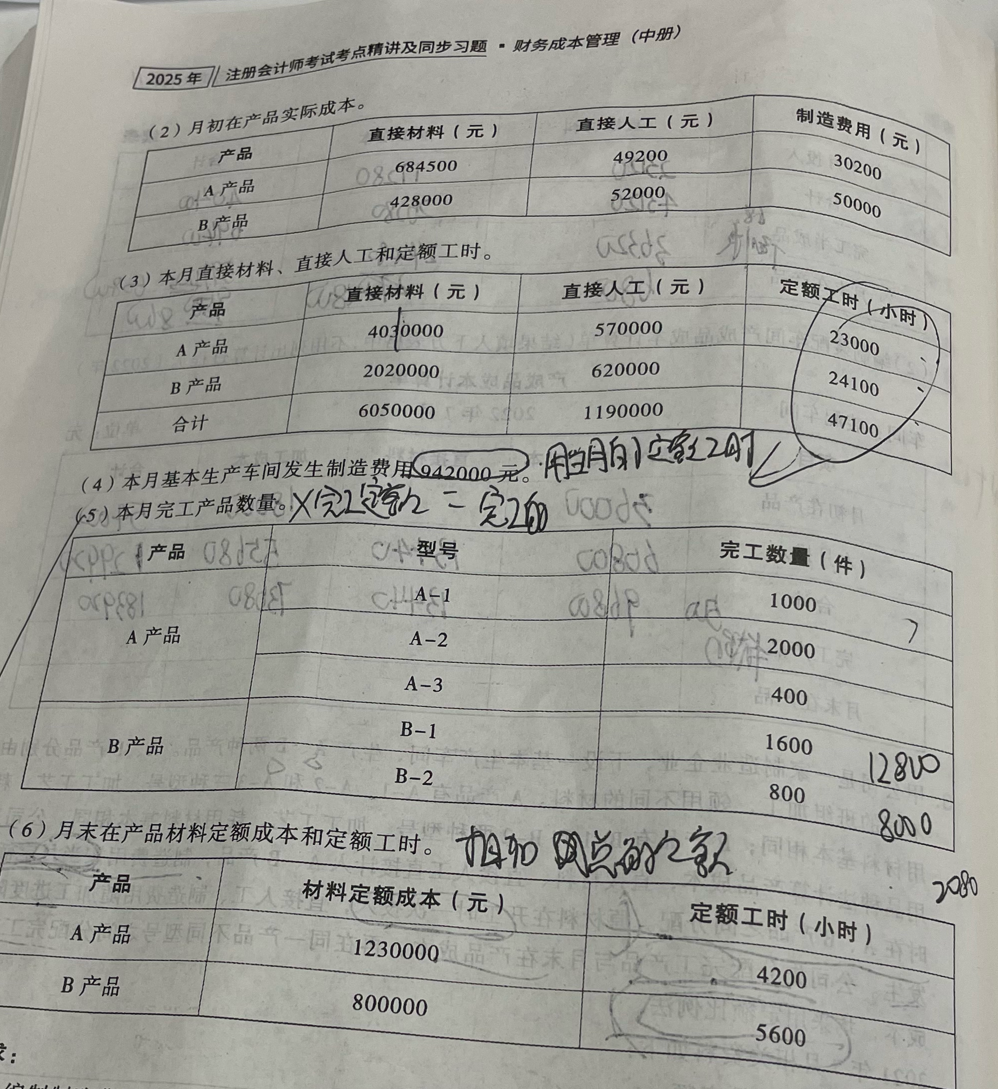 2025年 注册会计师考试考点精讲及同步习题 · 财务成本管理（中册）
（2）月初在产品实际成本。
产品 直接材料（元） 直接人工（元） 制造费用（元）
A产品 684500 49200 30200
B产品 428000 52000 50000
（3）本月直接材料、直接人工和定额工时。
产品 直接材料（元） 直接人工（元） 定额工时（小时）
A产品 4030000 570000 23000
B产品 2020000 620000 24100
合计 6050000 1190000 47100
（4）本月基本生产车间发生制造费用942000元。 用当月的定额工时
（5）本月完工产品数量。
产品 型号 完工数量（件）
A产品 A-1 1000
A-2 2000
A-3 400
B产品 B-1 1600 12800
B-2 800 8000
（6）月末在产品材料定额成本和定额工时。
2080
产品 材料定额成本（元） 定额工时（小时）
A产品 1230000 4200
B产品 800000 5600
求：